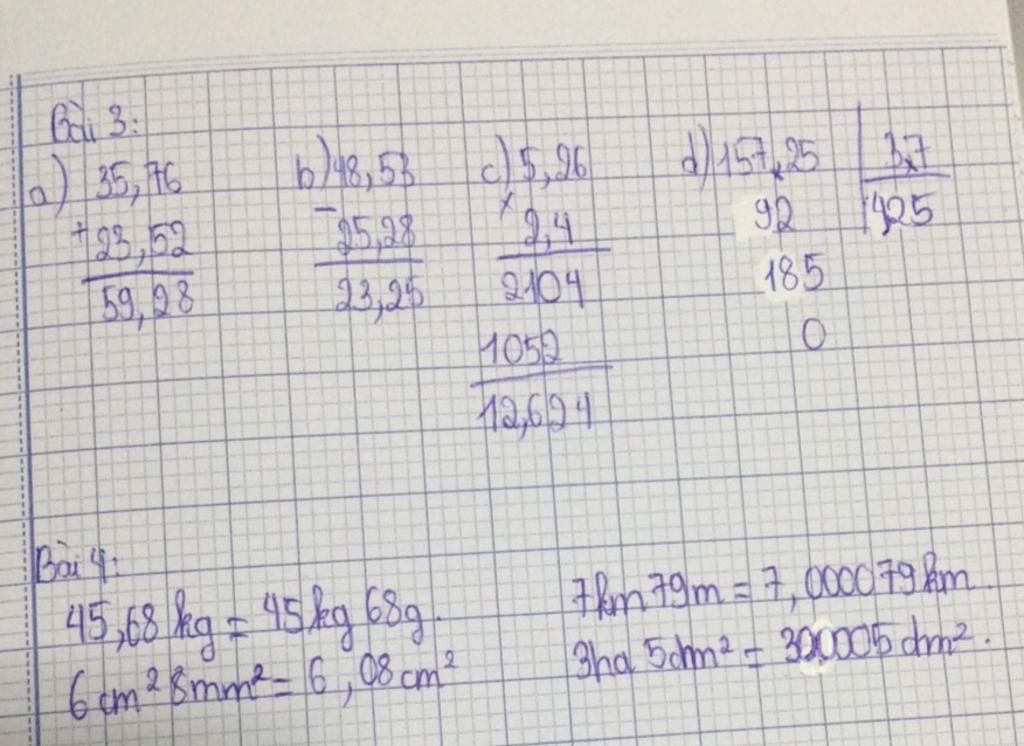 Bài 3:
a) 35,76 b) 48,53 c) 5,26 d) 157,25 3,7
+ 23,52 - 25,28 × 2,4 92 42,5
59,28 23,25 2104 185
1052 0
12,624
Bài 4:
45,68 kg = 45 kg 68g. 7km 79m = 7,000079 km.
6 cm² 8mm² = 6,08 cm² 3ha 5dm² = 300005 dm².